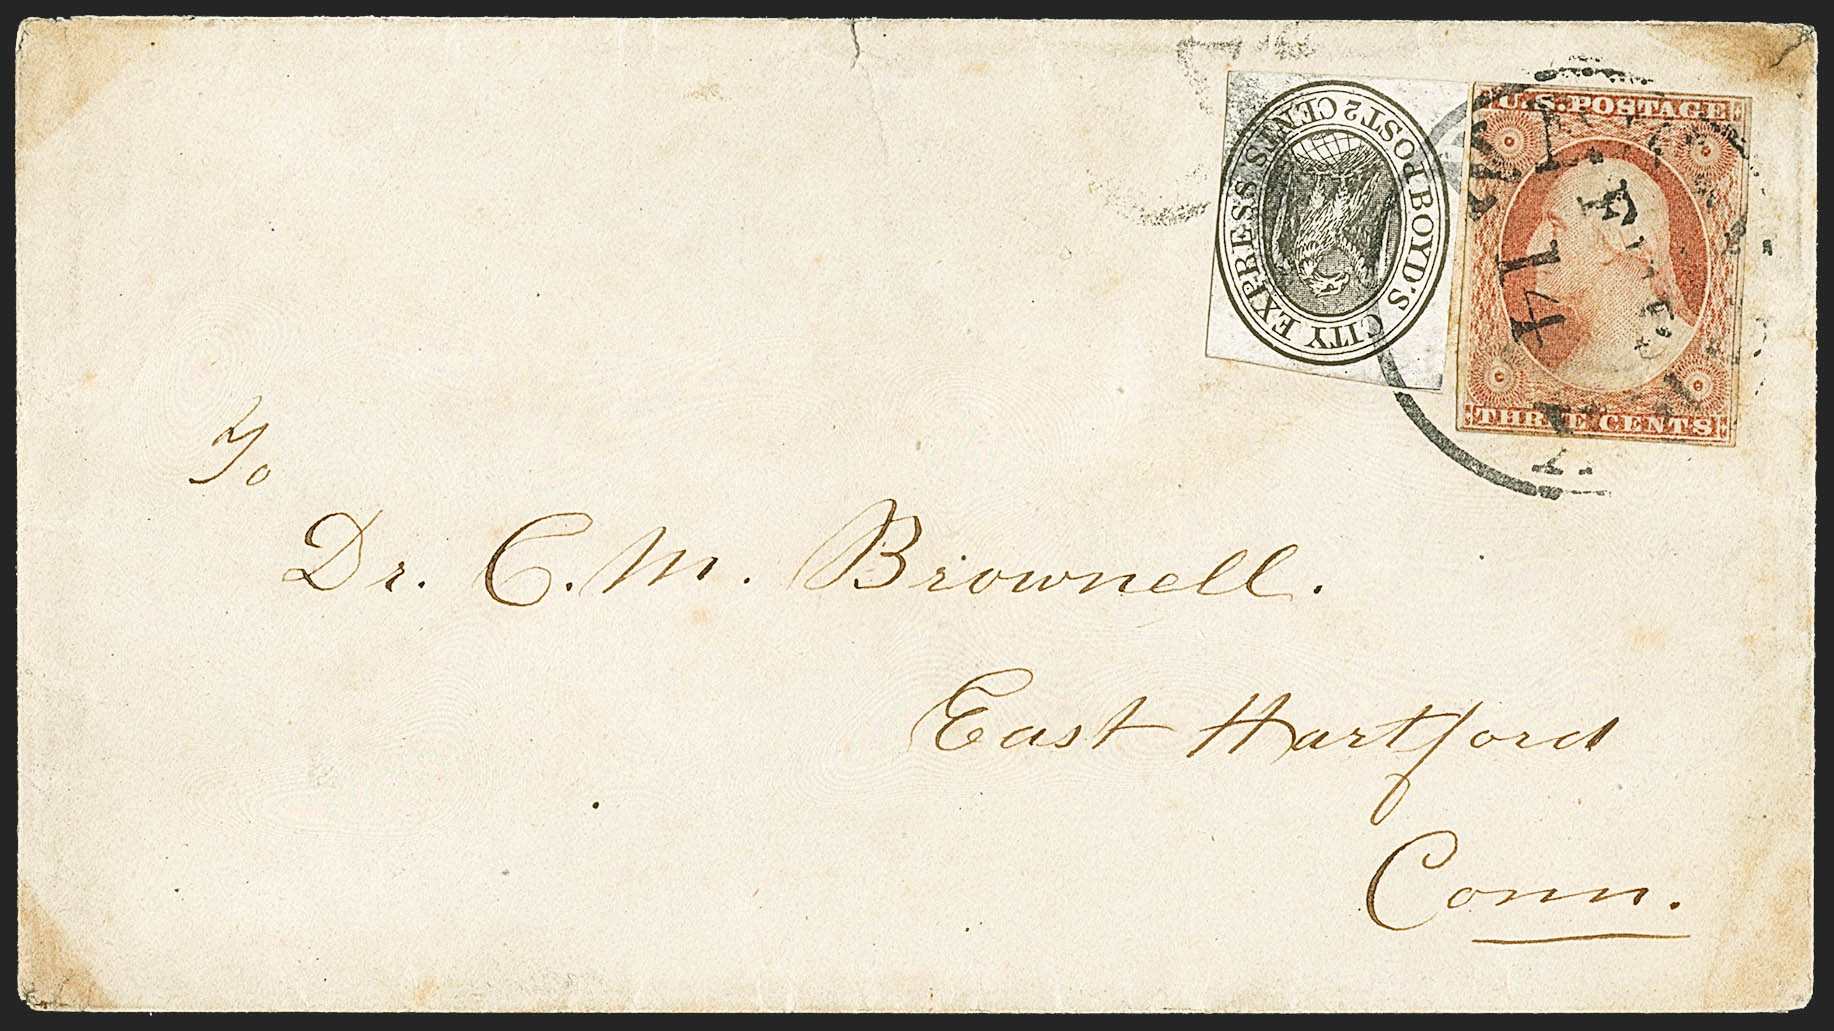 BOYD'S CITY EXPRESS POST 2 CENTS
U.S. POSTAGE
THREE CENTS
14
To
Dr. C. M. Brownell.
East Hartford
Conn.